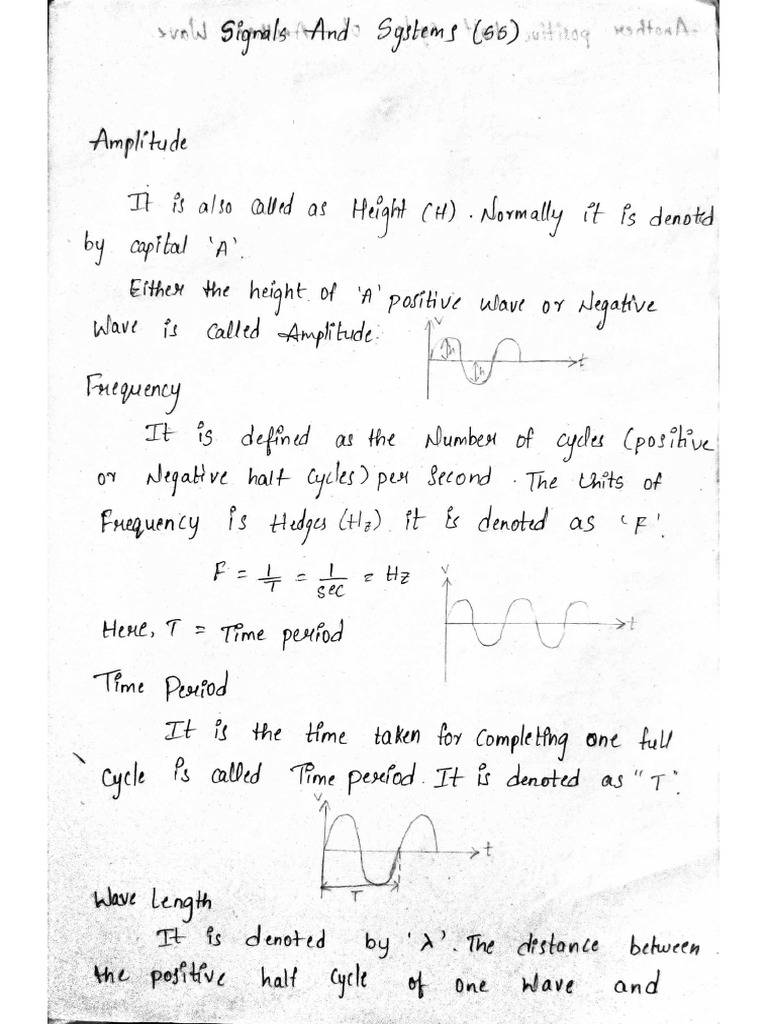 Signals And Systems (SS)
Amplitude
It is also called as Height (H). Normally it is denotd
by capital 'A'.
Either the height of 'A' positive wave or Negative
Wave is called Amplitude.
V
h
h
t
Frequency
It is defined as the Number of cycles (positive
or Negative half cycles) per second. The Units of
Frequency is Hedges (Hz). it is denoted as 'F'.
F = 1/T = 1/sec = Hz
V
t
Here, T = Time period
Time Period
It is the time taken for completing one full
cycle is called Time period. It is denoted as "T".
V
t
T
Wave Length
It is denoted by 'λ'. The distance between
the positive half cycle of one wave and